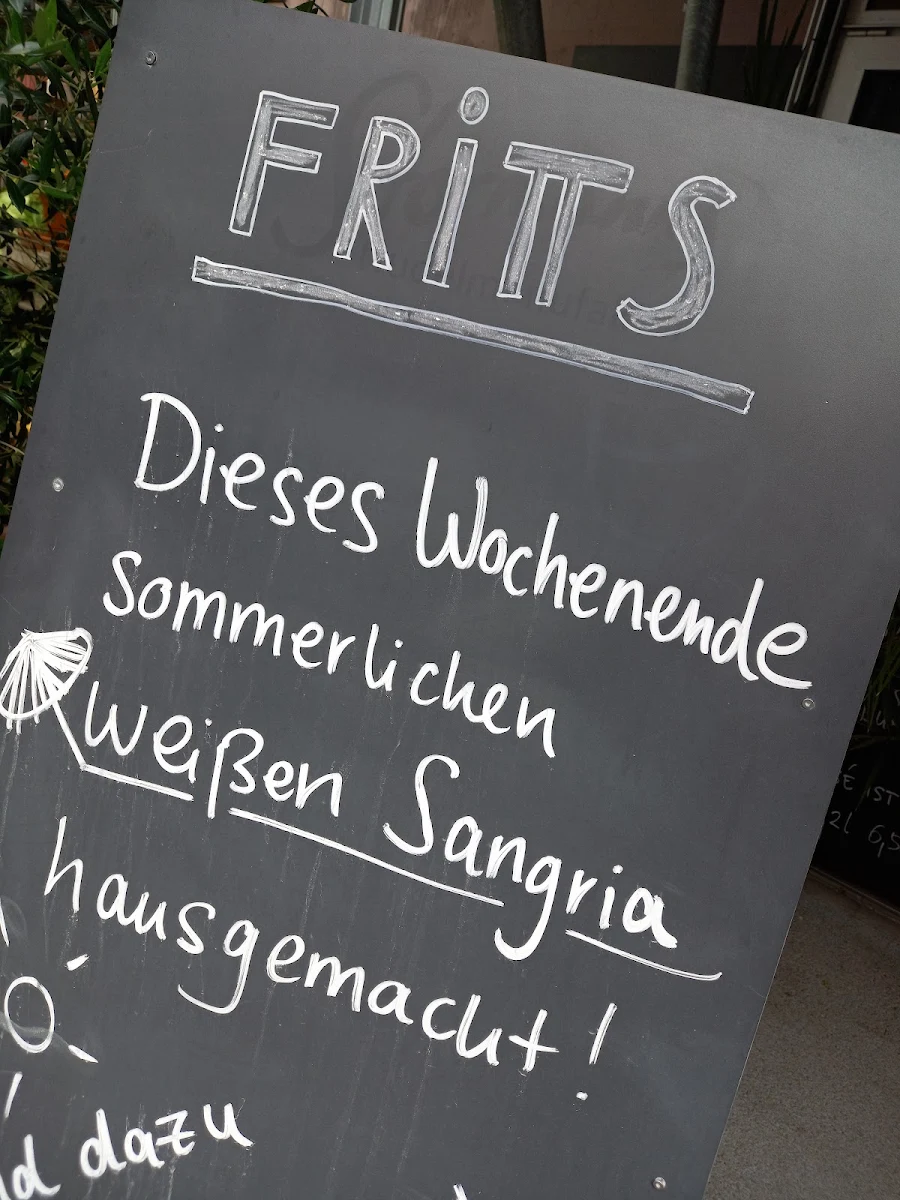 FRiTTS
Dieses Wochenende
sommerlichen
weißen Sangria
hausgemacht!
dazu
IST
2l 6,5